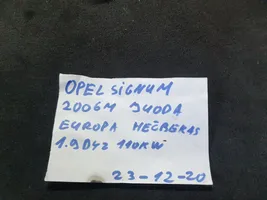 OPEL SIGNUM
2006M JUODA
EUROPA HEČBEKAS
1.9D42 110KW
23-12-20